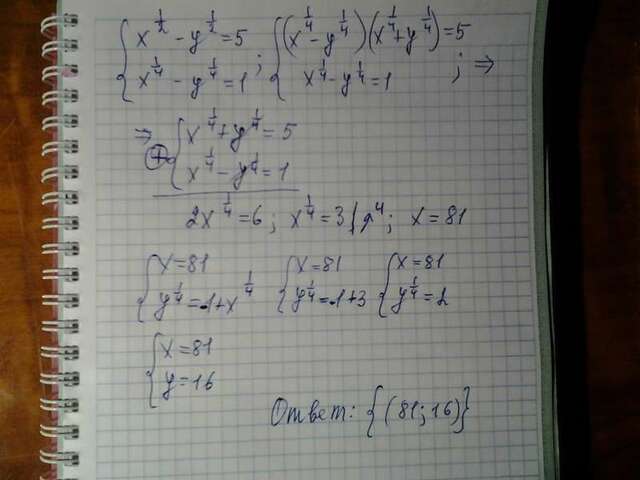 { x^{1/2} - y^{1/2} = 5 ; { (x^{1/4} - y^{1/4})(x^{1/4} + y^{1/4}) = 5 ; ⇒
{ x^{1/4} - y^{1/4} = 1 { x^{1/4} - y^{1/4} = 1
⇒ ⊕ { x^{1/4} + y^{1/4} = 5
{ x^{1/4} - y^{1/4} = 1
2x^{1/4} = 6 ; x^{1/4} = 3 |^4 ; x = 81
{ x = 81 { x = 81 { x = 81
{ y^{1/4} = -1 + x^{1/4} { y^{1/4} = -1 + 3 { y^{1/4} = 2
{ x = 81
{ y = 16
Ответ: {(81; 16)}